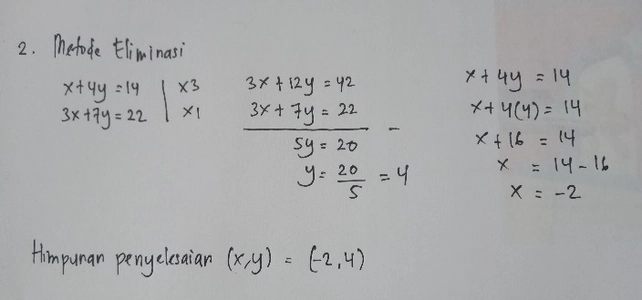 2. Metode Eliminasi
x+4y=14 | x3
3x+7y=22 | x1
3x+12y=42
3x+7y=22
5y=20 -
y=20/5=4
x+4y=14
x+4(4)=14
x+16=14
x=14-16
x=-2
Himpunan penyelesaian (x,y) = (-2,4)